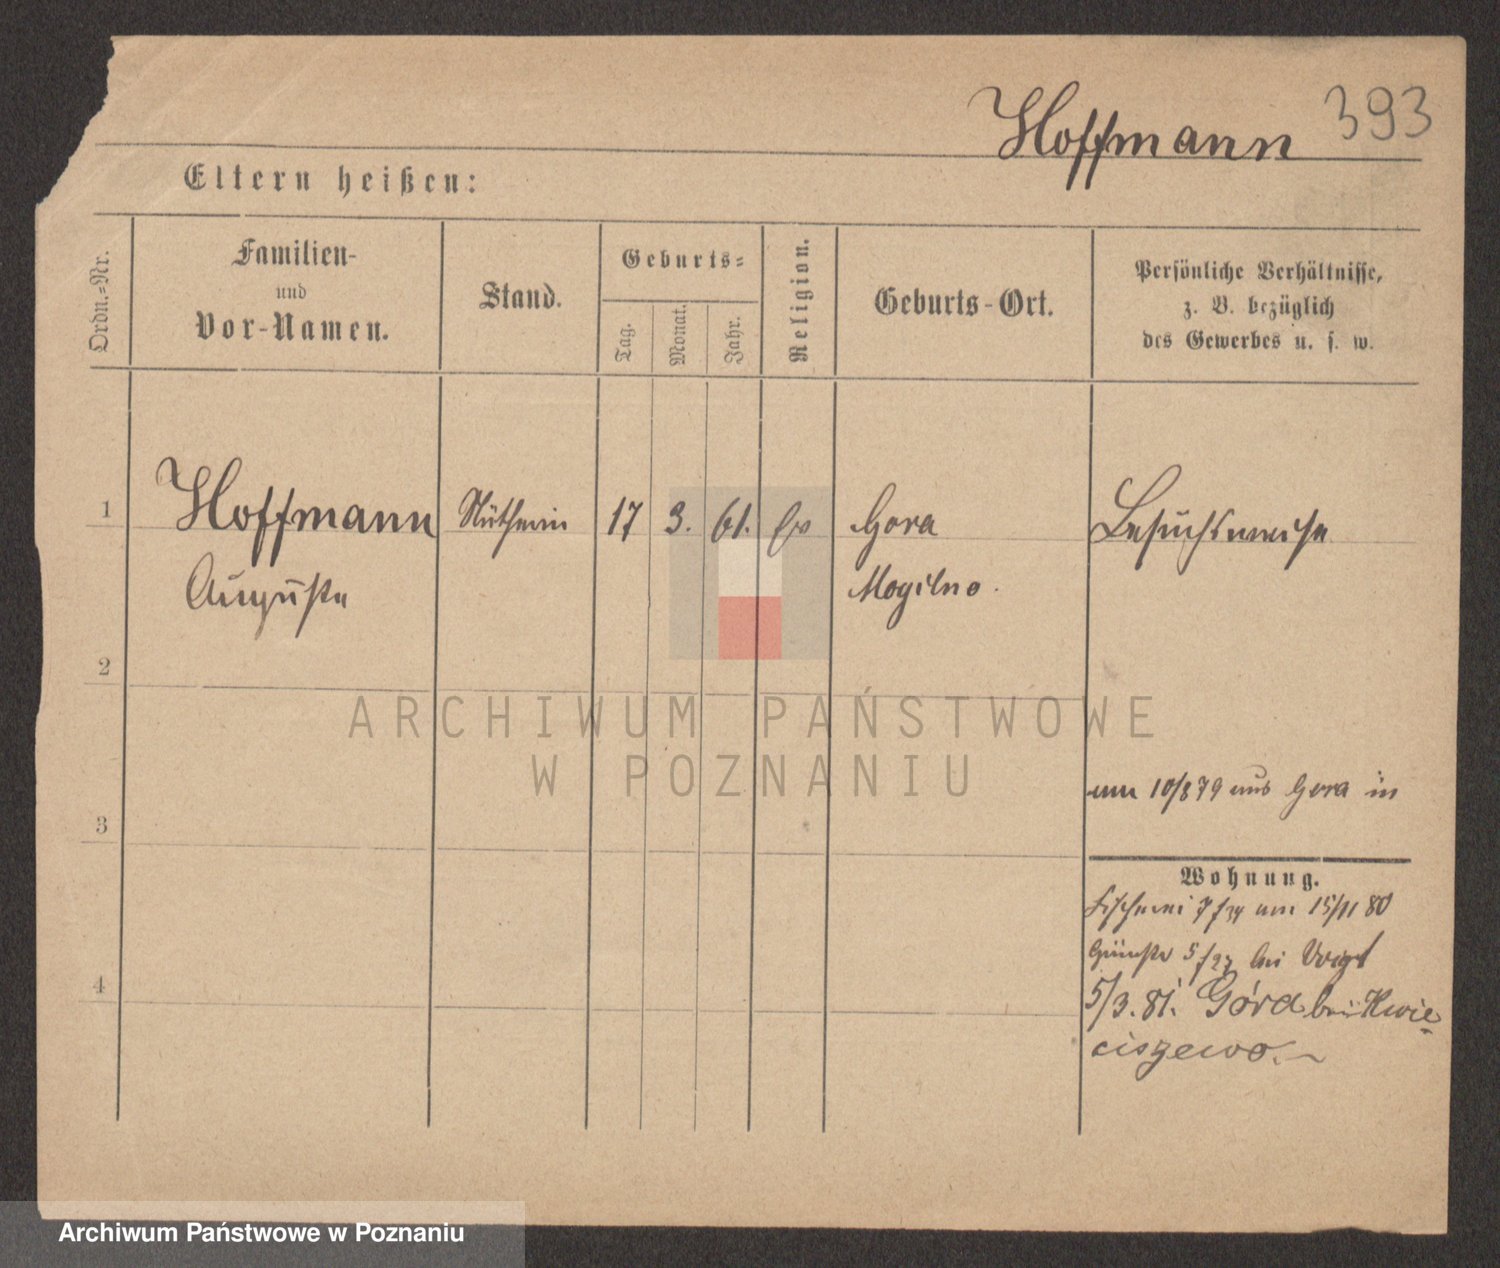 Hoffmann 393
Eltern heißen:
Ordn.=Nr.
Familien-
und
Vor-Namen.
Stand.
Geburts=
Tag.
Monat.
Jahr.
Religion.
Geburts-Ort.
Persönliche Verhältnisse,
z. B. bezüglich
des Gewerbes u. s. w.
1 Hoffmann Nätherin 17 3. 61. Ev Gora Besuchsweise
Auguste Mogilno.
2
ARCHIWUM PAŃSTWOWE
W POZNANIU
am 10/8 79 aus Gora in
3
Wohnung.
Fischerei 7 am 15/11 80
5 bei Voigt
4
5/3. 81. Góra bei Kwie-
ciszewo.
Archiwum Państwowe w Poznaniu